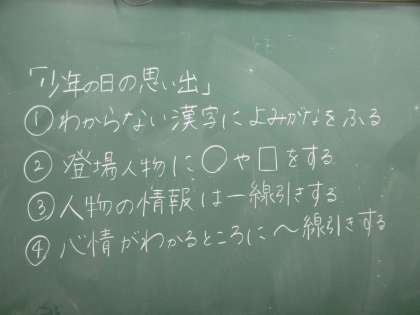 「少年の日の思い出」
①わからない漢字によみがなをふる
②登場人物に○や□をする
③人物の情報は一線引きする
④心情がわかるところに〜線引きする